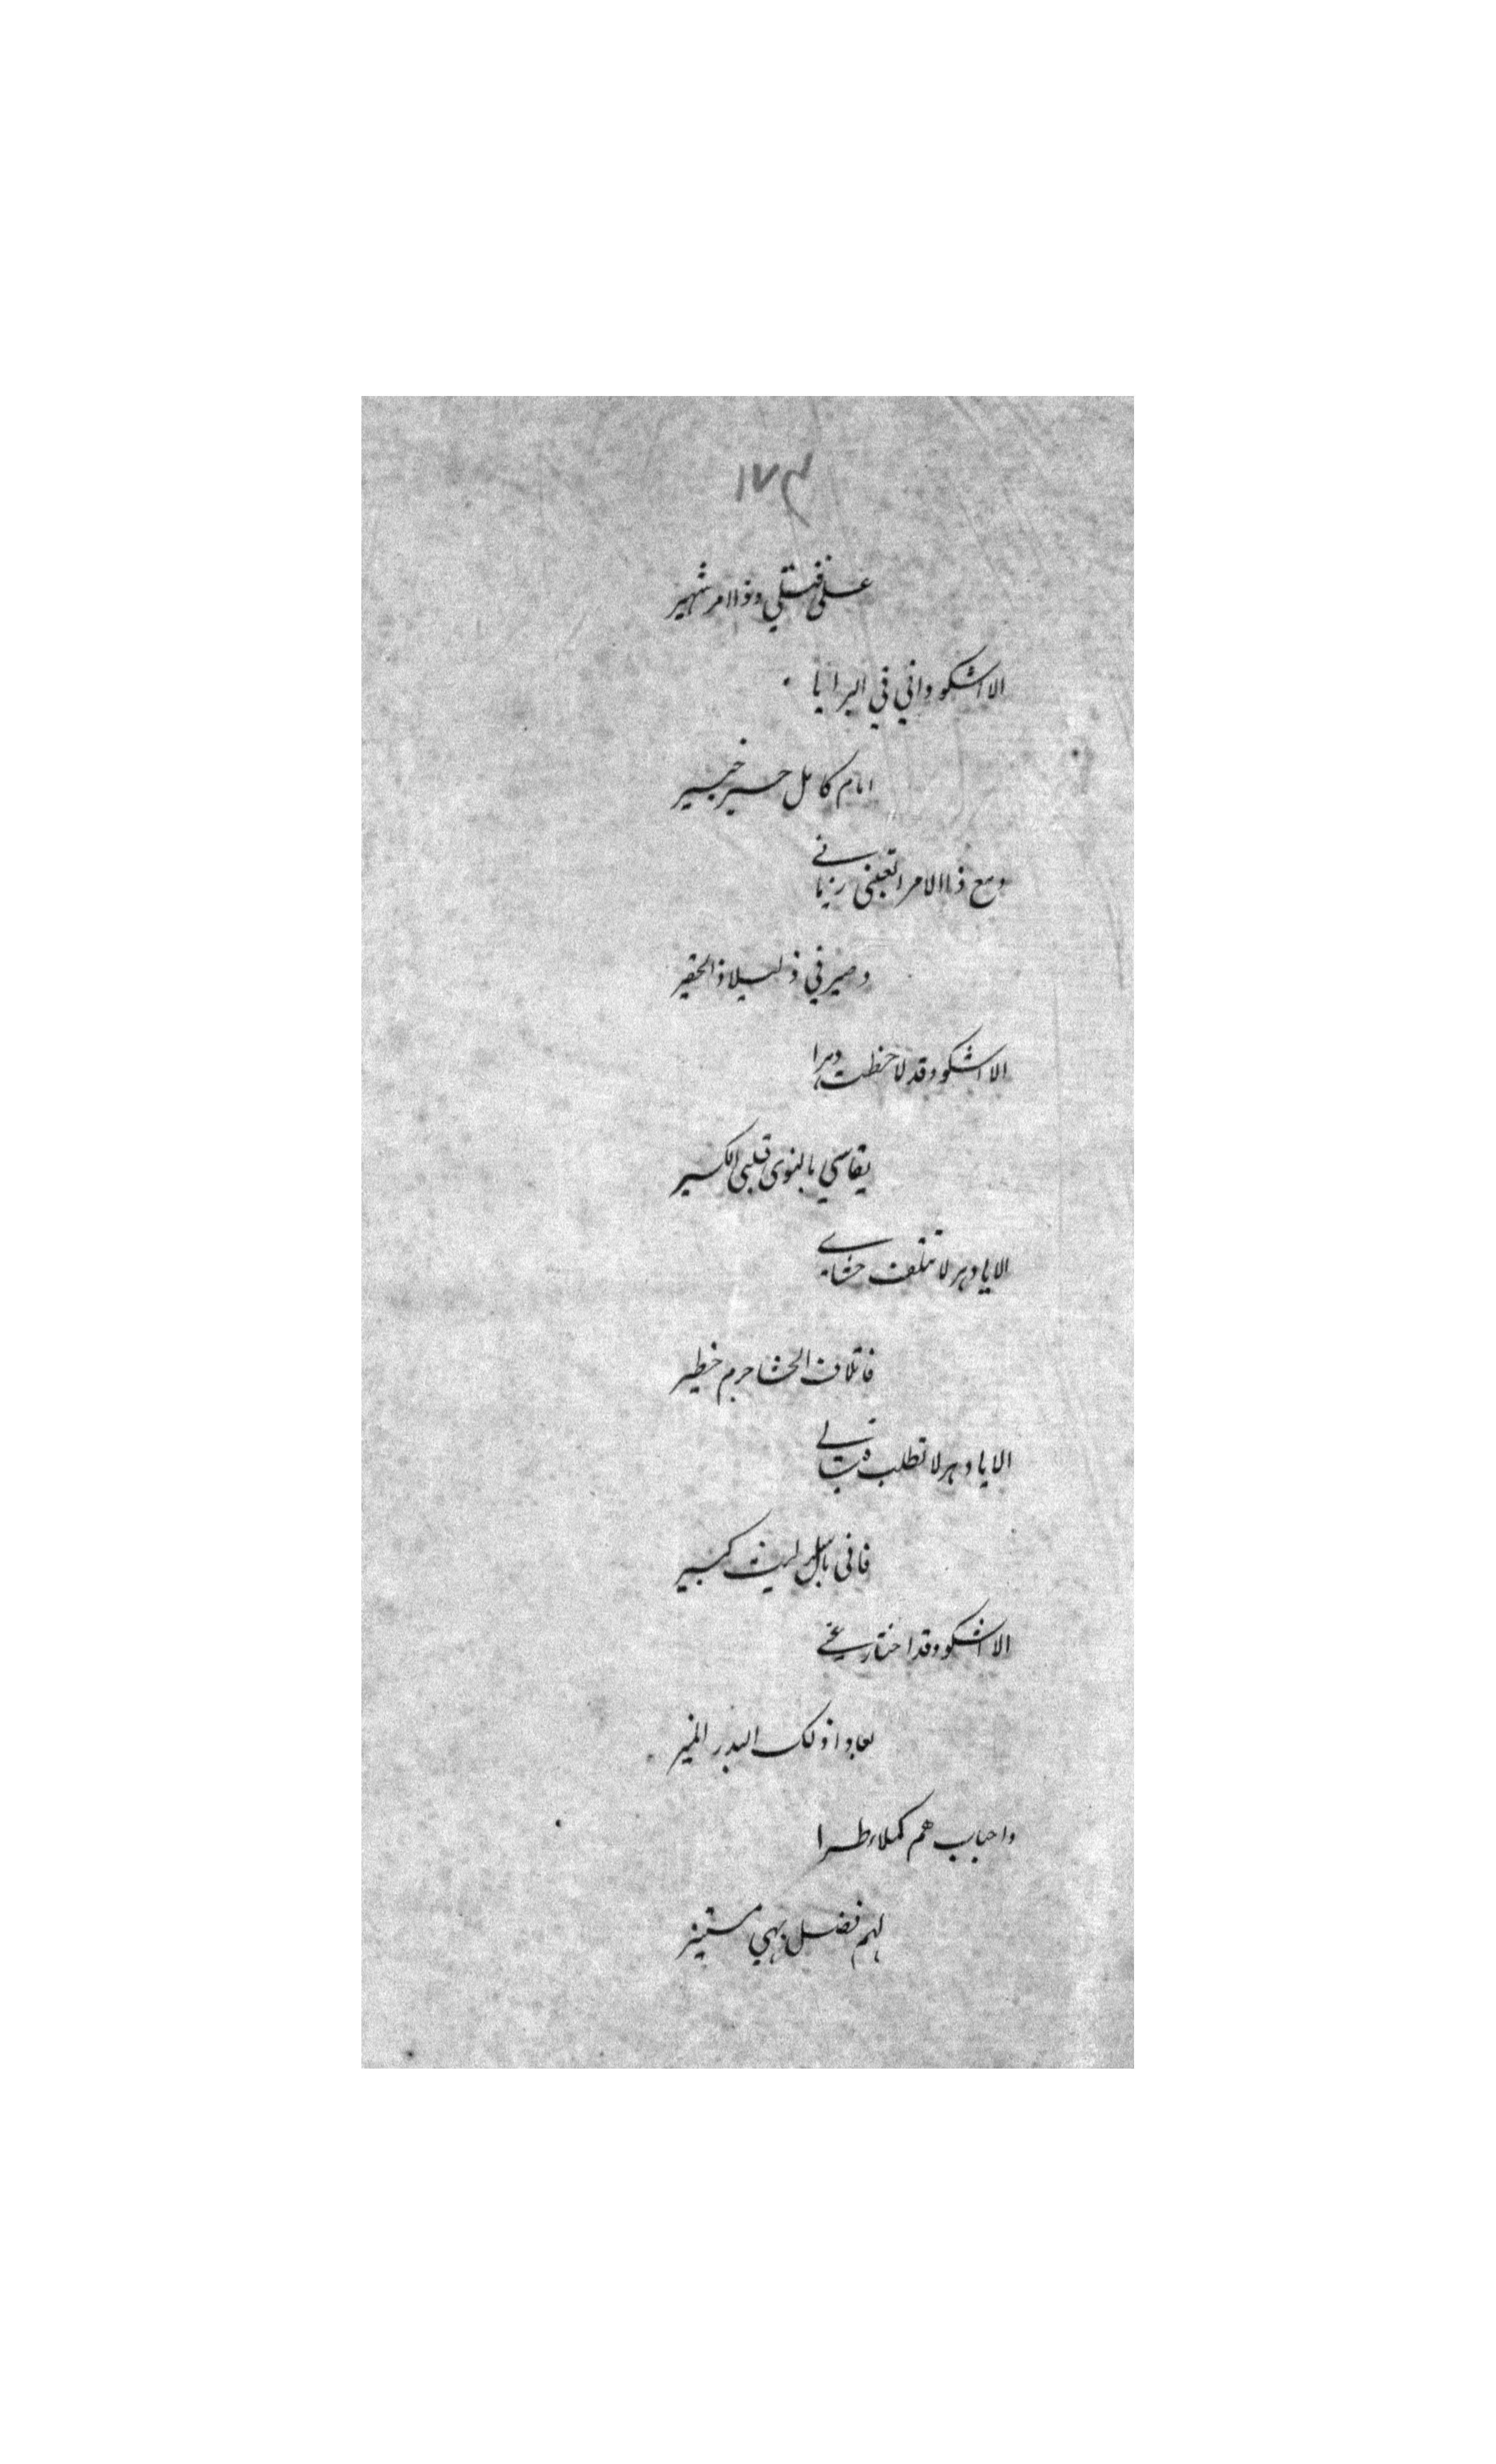 ١٧٤
على قتلي وذا امر شهير
الا اشكو واني في البرايا
امام كامل حبر خبير
ومع ذا الامر اتعبني زماني
وصيرني ذليلا ذا الحقير
الا اشكو وقد لاحظت دهرا
يقاسي بالنوى قلبي الكسير
الا يا دهر لا تتلف حشاي
فاتلاف الحشا جرم خطير
الا يا دهر لا تطلب قتالي
فاني باسل ليث كبير
الا اشكو وقد اختار عني
بعادا ذلك البدر المنير
واحباب هم كملاء طرا
لهم فضل بهي مستنير